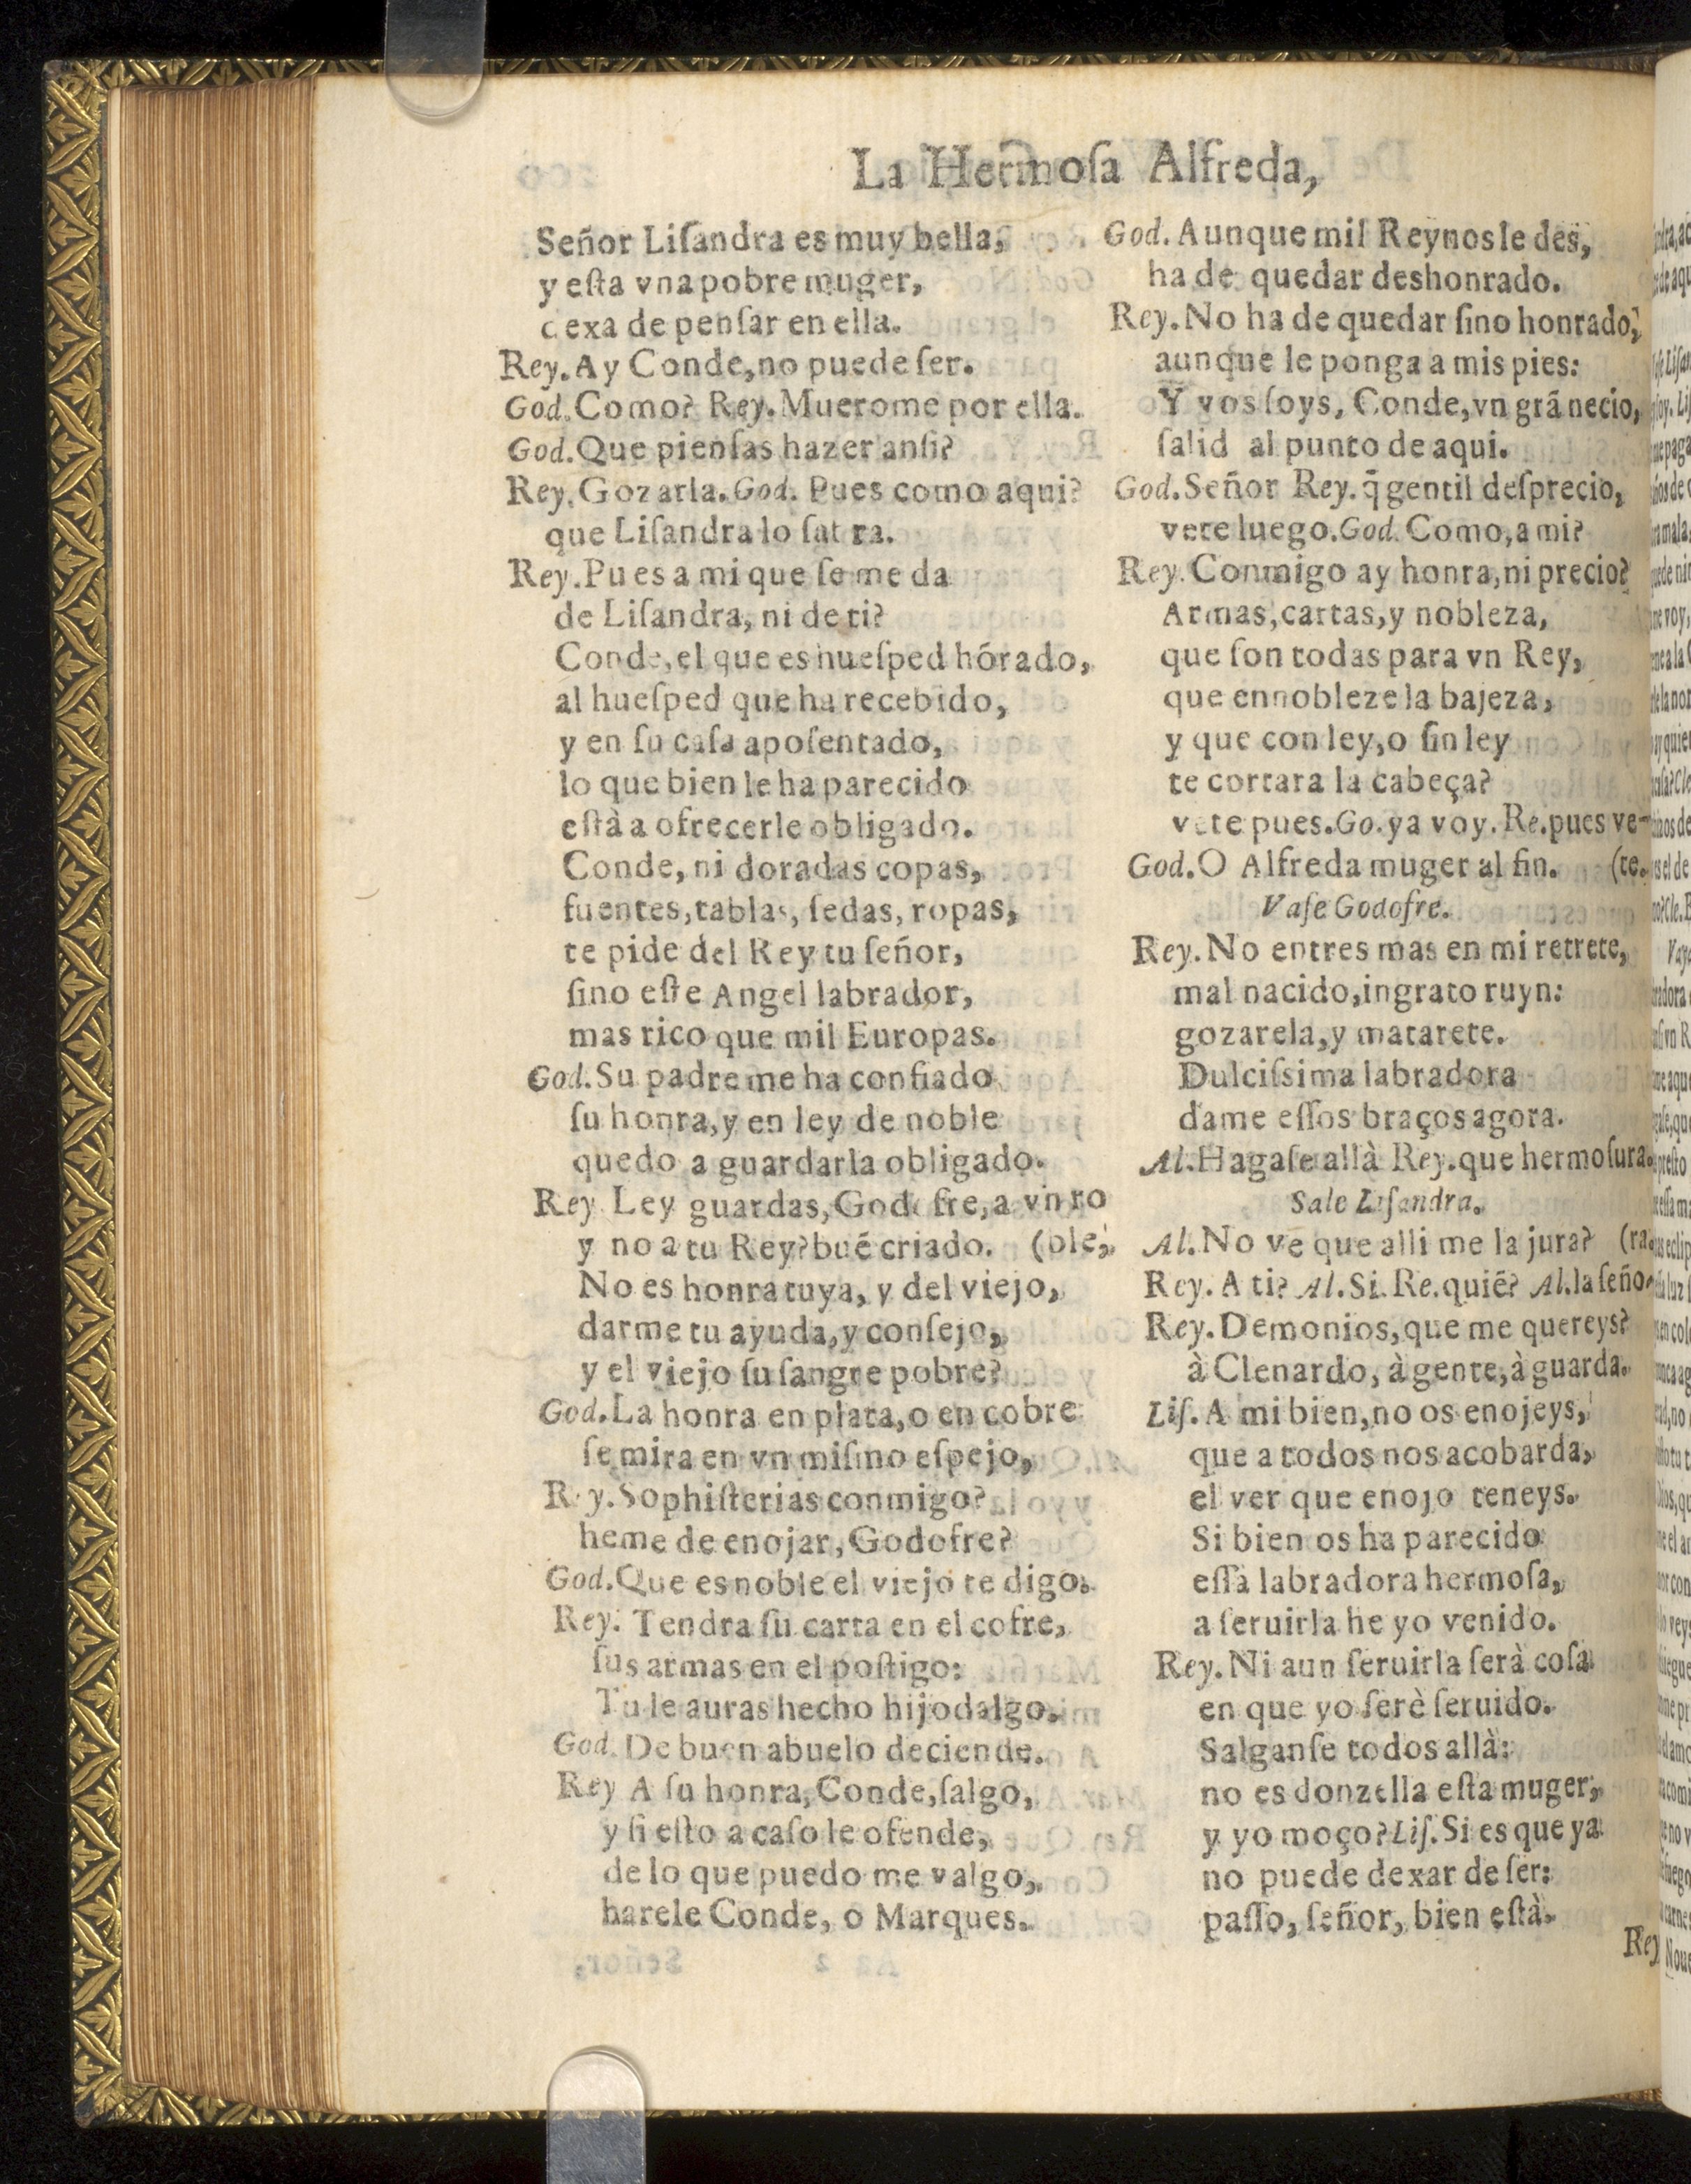 La Hermoſa Alfreda,
Señor Liſandra es muy bella,
y eſta vna pobre muger,
dexa de penſar en ella.
Rey. Ay Conde, no puede ſer.
God. Como? Rey. Muerome por ella.
God. Que pienſas hazer anſi?
Rey. Gozarla. God. Pues como aqui?
que Liſandra lo ſabra.
Rey. Pues a mi que ſe me da
de Liſandra, ni de ti?
Conde, el que es hueſped hórado,
al hueſped que ha recebido,
y en ſu caſa apoſentado,
lo que bien le ha parecido
eſtà a ofrecerle obligado.
Conde, ni doradas copas,
fuentes, tablas, ſedas, ropas,
te pide del Rey tu ſeñor,
ſino eſte Angel labrador,
mas rico que mil Europas.
God. Su padre me ha confiado
ſu honra, y en ley de noble
quedo a guardarla obligado.
Rey Ley guardas, Godofre, a vn ro
y no a tu Rey? bué criado. (ble,
No es honra tuya, y del viejo,
darme tu ayuda, y conſejo,
y el viejo ſu ſangre pobre?
God. La honra en plata, o en cobre
ſe mira en vn miſmo eſpejo,
Rey. Sophiſterias conmigo?
heme de enojar, Godofre?
God. Que es noble el viejo te digo.
Rey. Tendra ſu carta en el cofre,
ſus armas en el poſtigo:
Tu le auras hecho hijodalgo.
God. De buen abuelo deciende.
Rey A ſu honra, Conde, ſalgo,
y ſi eſto a caſo le ofende,
de lo que puedo me valgo,
harele Conde, o Marques.
God. Aunque mil Reynos le des,
ha de quedar deshonrado.
Rey. No ha de quedar ſino honrado,
aunque le ponga a mis pies:
Y vos ſoys, Conde, vn grã necio,
ſalid al punto de aqui.
God. Señor Rey. q̃ gentil deſprecio,
vete luego. God. Como, a mi?
Rey. Conmigo ay honra, ni precio?
Armas, cartas, y nobleza,
que ſon todas para vn Rey,
que ennobleze la bajeza,
y que con ley, o ſin ley
te cortara la cabeça?
vete pues. Go. ya voy. Re. pues ve-
God. O Alfreda muger al fin. (te.
Vaſe Godofre.
Rey. No entres mas en mi retrete,
mal nacido, ingrato ruyn:
gozarela, y matarete.
Dulciſsima labradora
dame eſſos braços agora.
Al. Hagaſe allà Rey. que hermoſura.
Sale Liſandra.
Al. No ve que alli me la jura? (ra.
Rey. A ti? Al. Si. Re. quiē? Al. la ſeño-
Rey. Demonios, que me quereys?
à Clenardo, à gente, à guarda.
Liſ. A mi bien, no os enojeys,
que a todos nos acobarda,
el ver que enojo teneys.
Si bien os ha parecido
eſſa labradora hermoſa,
a ſeruirla he yo venido.
Rey. Ni aun ſeruirla ſerà coſa
en que yo ſerè ſeruido.
Salganſe todos allà:
no es donzella eſta muger,
y yo moço? Liſ. Si es que ya
no puede dexar de ſer:
paſſo, ſeñor, bien eſtà.
Rey